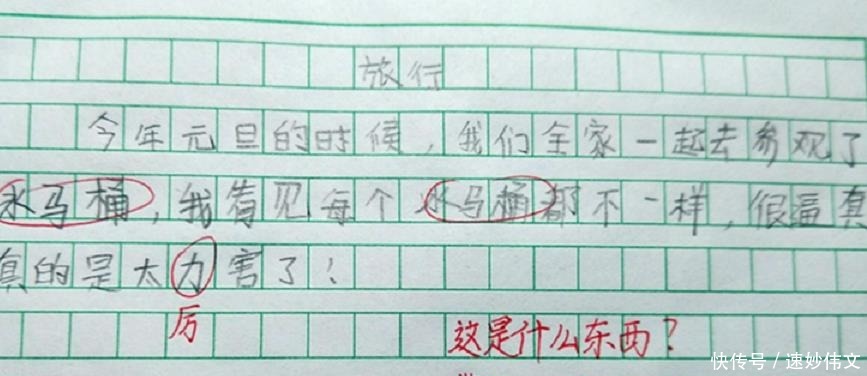 旅行
今年元旦的时候，我们全家一起去参观了
水马桶，我看见每个水马桶都不一样，很逼真
真的是太力害了！
厉
这是什么东西？
快传号／速妙伟文